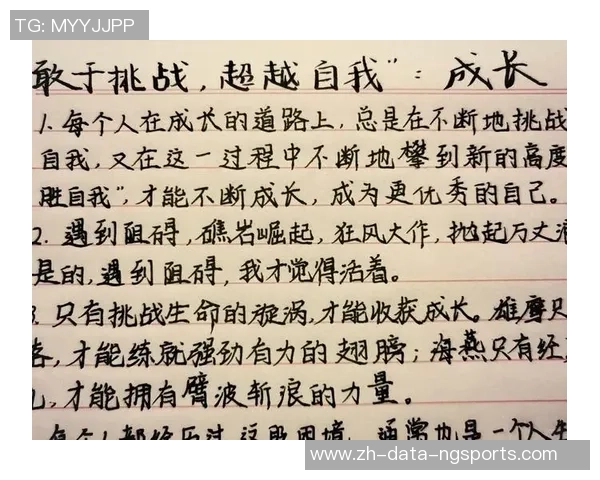 TG: MYYJJPP
敢于挑战,超越自我”:成长
1.每个人在成长的道路上,总是在不断地挑战
自我,又在这一过程中不断地攀到新的高度
胜自我”,才能不断成长,成为更优秀的自己。
2.遇到阻碍,礁岩崛起,狂风大作,抛起万丈
是的,遇到阻碍,我才觉得活着。
3.只有挑战生命的漩涡,才能收获成长。雄鹰只
,才能练就强劲有力的翅膀;海燕只有经
,才能拥有臂波斩浪的力量。
每个人都经历过这段困境,通常也是一个人
www.zh-data-ngsports.com